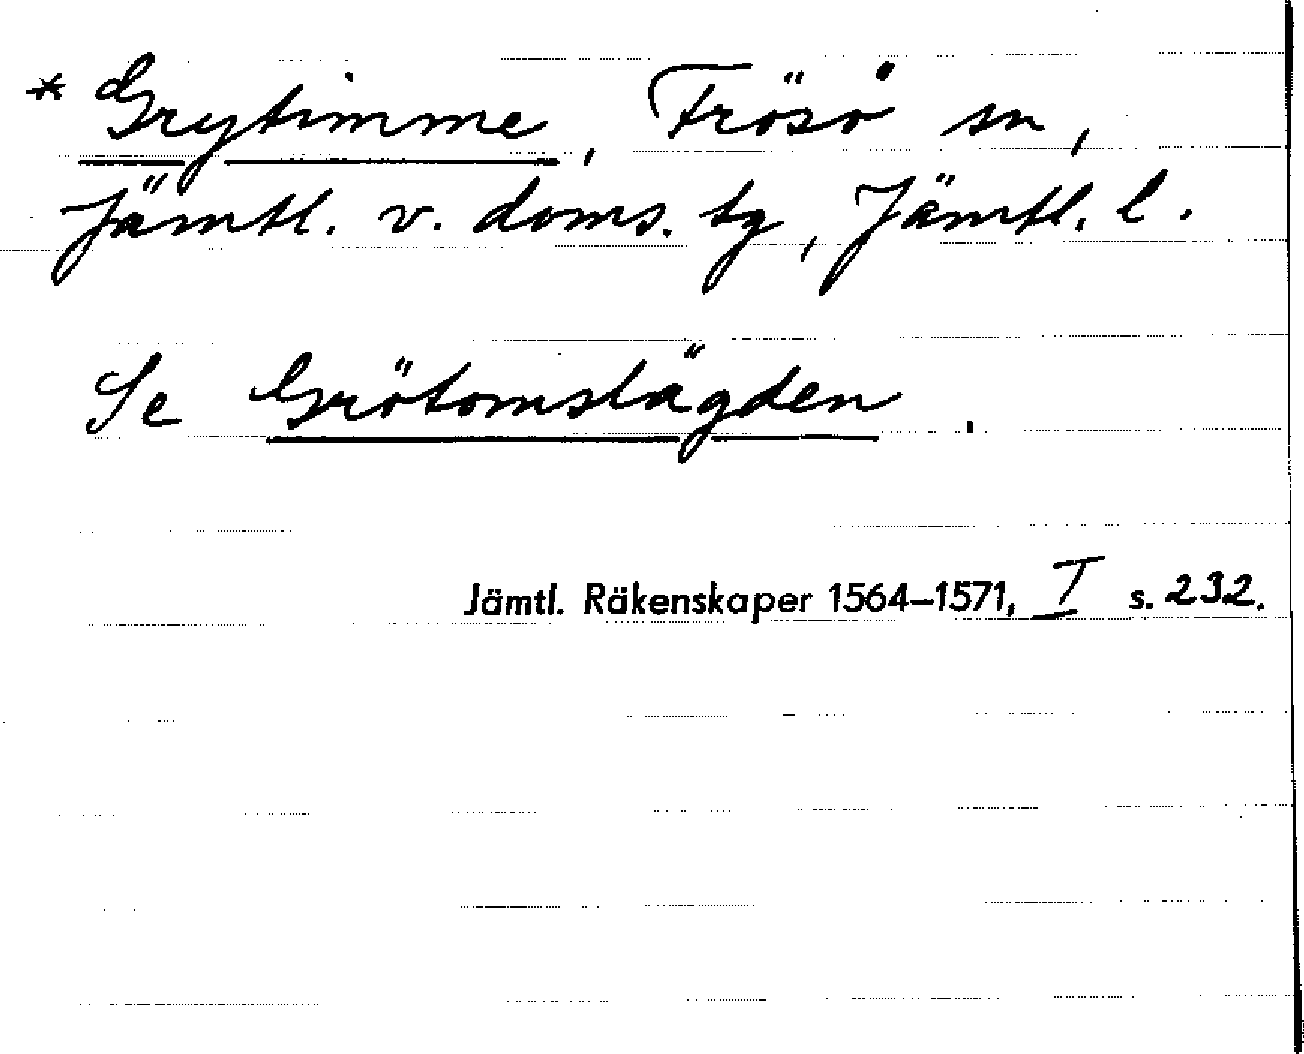 * Grytimme, Frösö sn,
Jämtl. v. doms. tg, Jämtl. l.
Se Grötomslägden.
Jämtl. Räkenskaper 1564–1571, I s. 232.